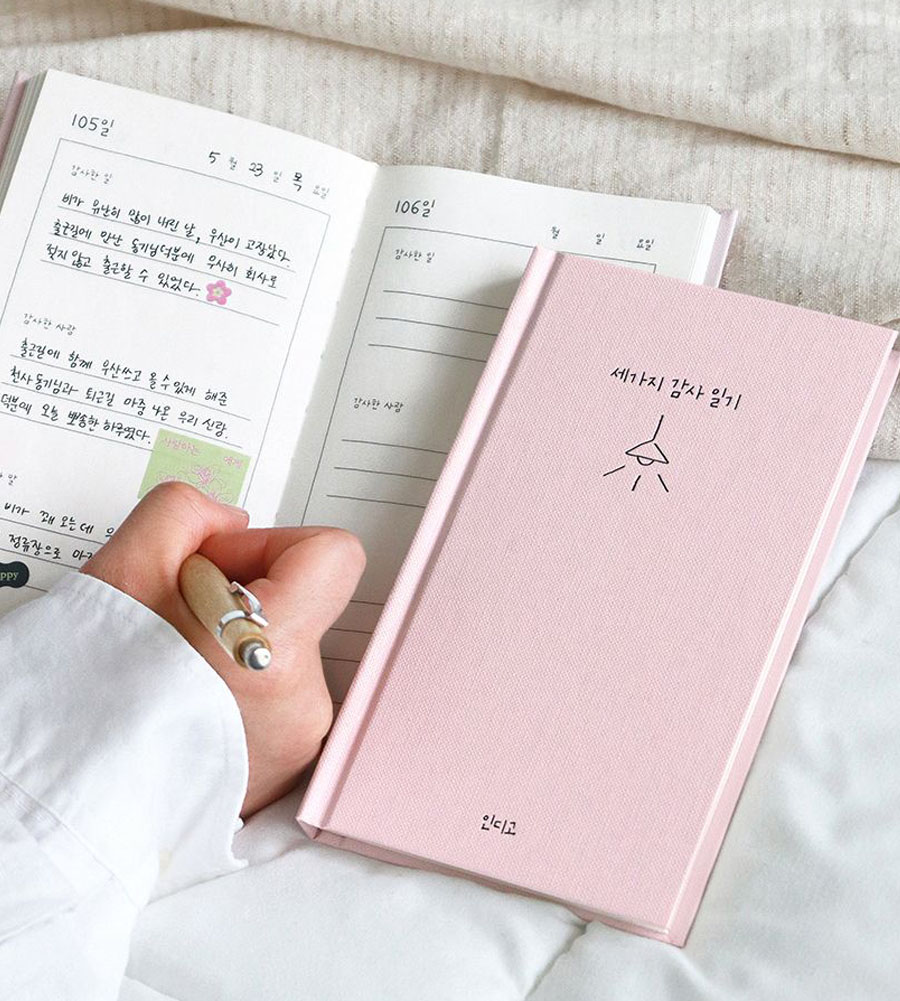 105일
5 월 23 일 목 요일
감사한 일
비가 유난히 많이 내린 날, 우산이 고장났다.
출근길에 만난 동기님덕분에 무사히 회사로
젖지않고 출근할 수 있었다.
감사한 사람
출근길에 함께 우산쓰고 올수있게 해준
천사동기님과 퇴근길 마중 나온 우리 신랑.
덕분에 오늘 뽀송한 하루였다.
사랑하는
비가 꽤 오는데
정류장으로
PPY
106일
월 일 요일
감사한 일
감사한 사람
세가지 감사 일기
인디고